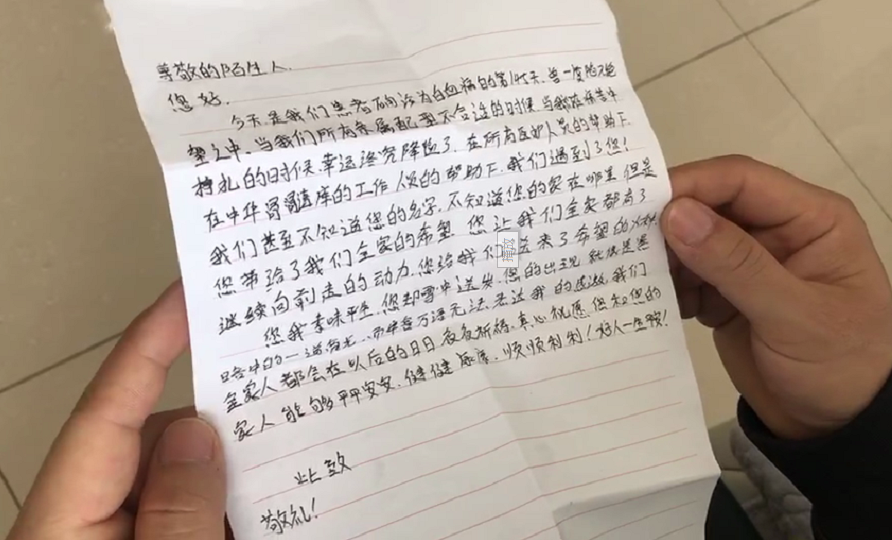 尊敬的陌生人.
您好.
今天是我们患者确诊为白血病的第145天,曾一度陷入绝
望之中,当我们所有亲属配型不合适的时候,当我
挣扎的时候,幸运终究降临了,在所有医护人员的帮助下
在中华骨髓库的工作人员的帮助下,我们遇到了您!
我们甚至不知道您的名字,不知道您的家在哪里,但是
您带给了我们全家的希望,您让我们全家都有了
继续向前走的动力,您给我们送来了希望的
您我素昧平生,您却雪中送炭,您的出现就像是黑
中的一道,而千言万语无法表达我的感激,我们
全家人都会在以后的日日夜夜祈祷,真心祝愿您和您的
家人能够平平安安,健健康康,顺顺利利!好人一生
此致
敬礼!